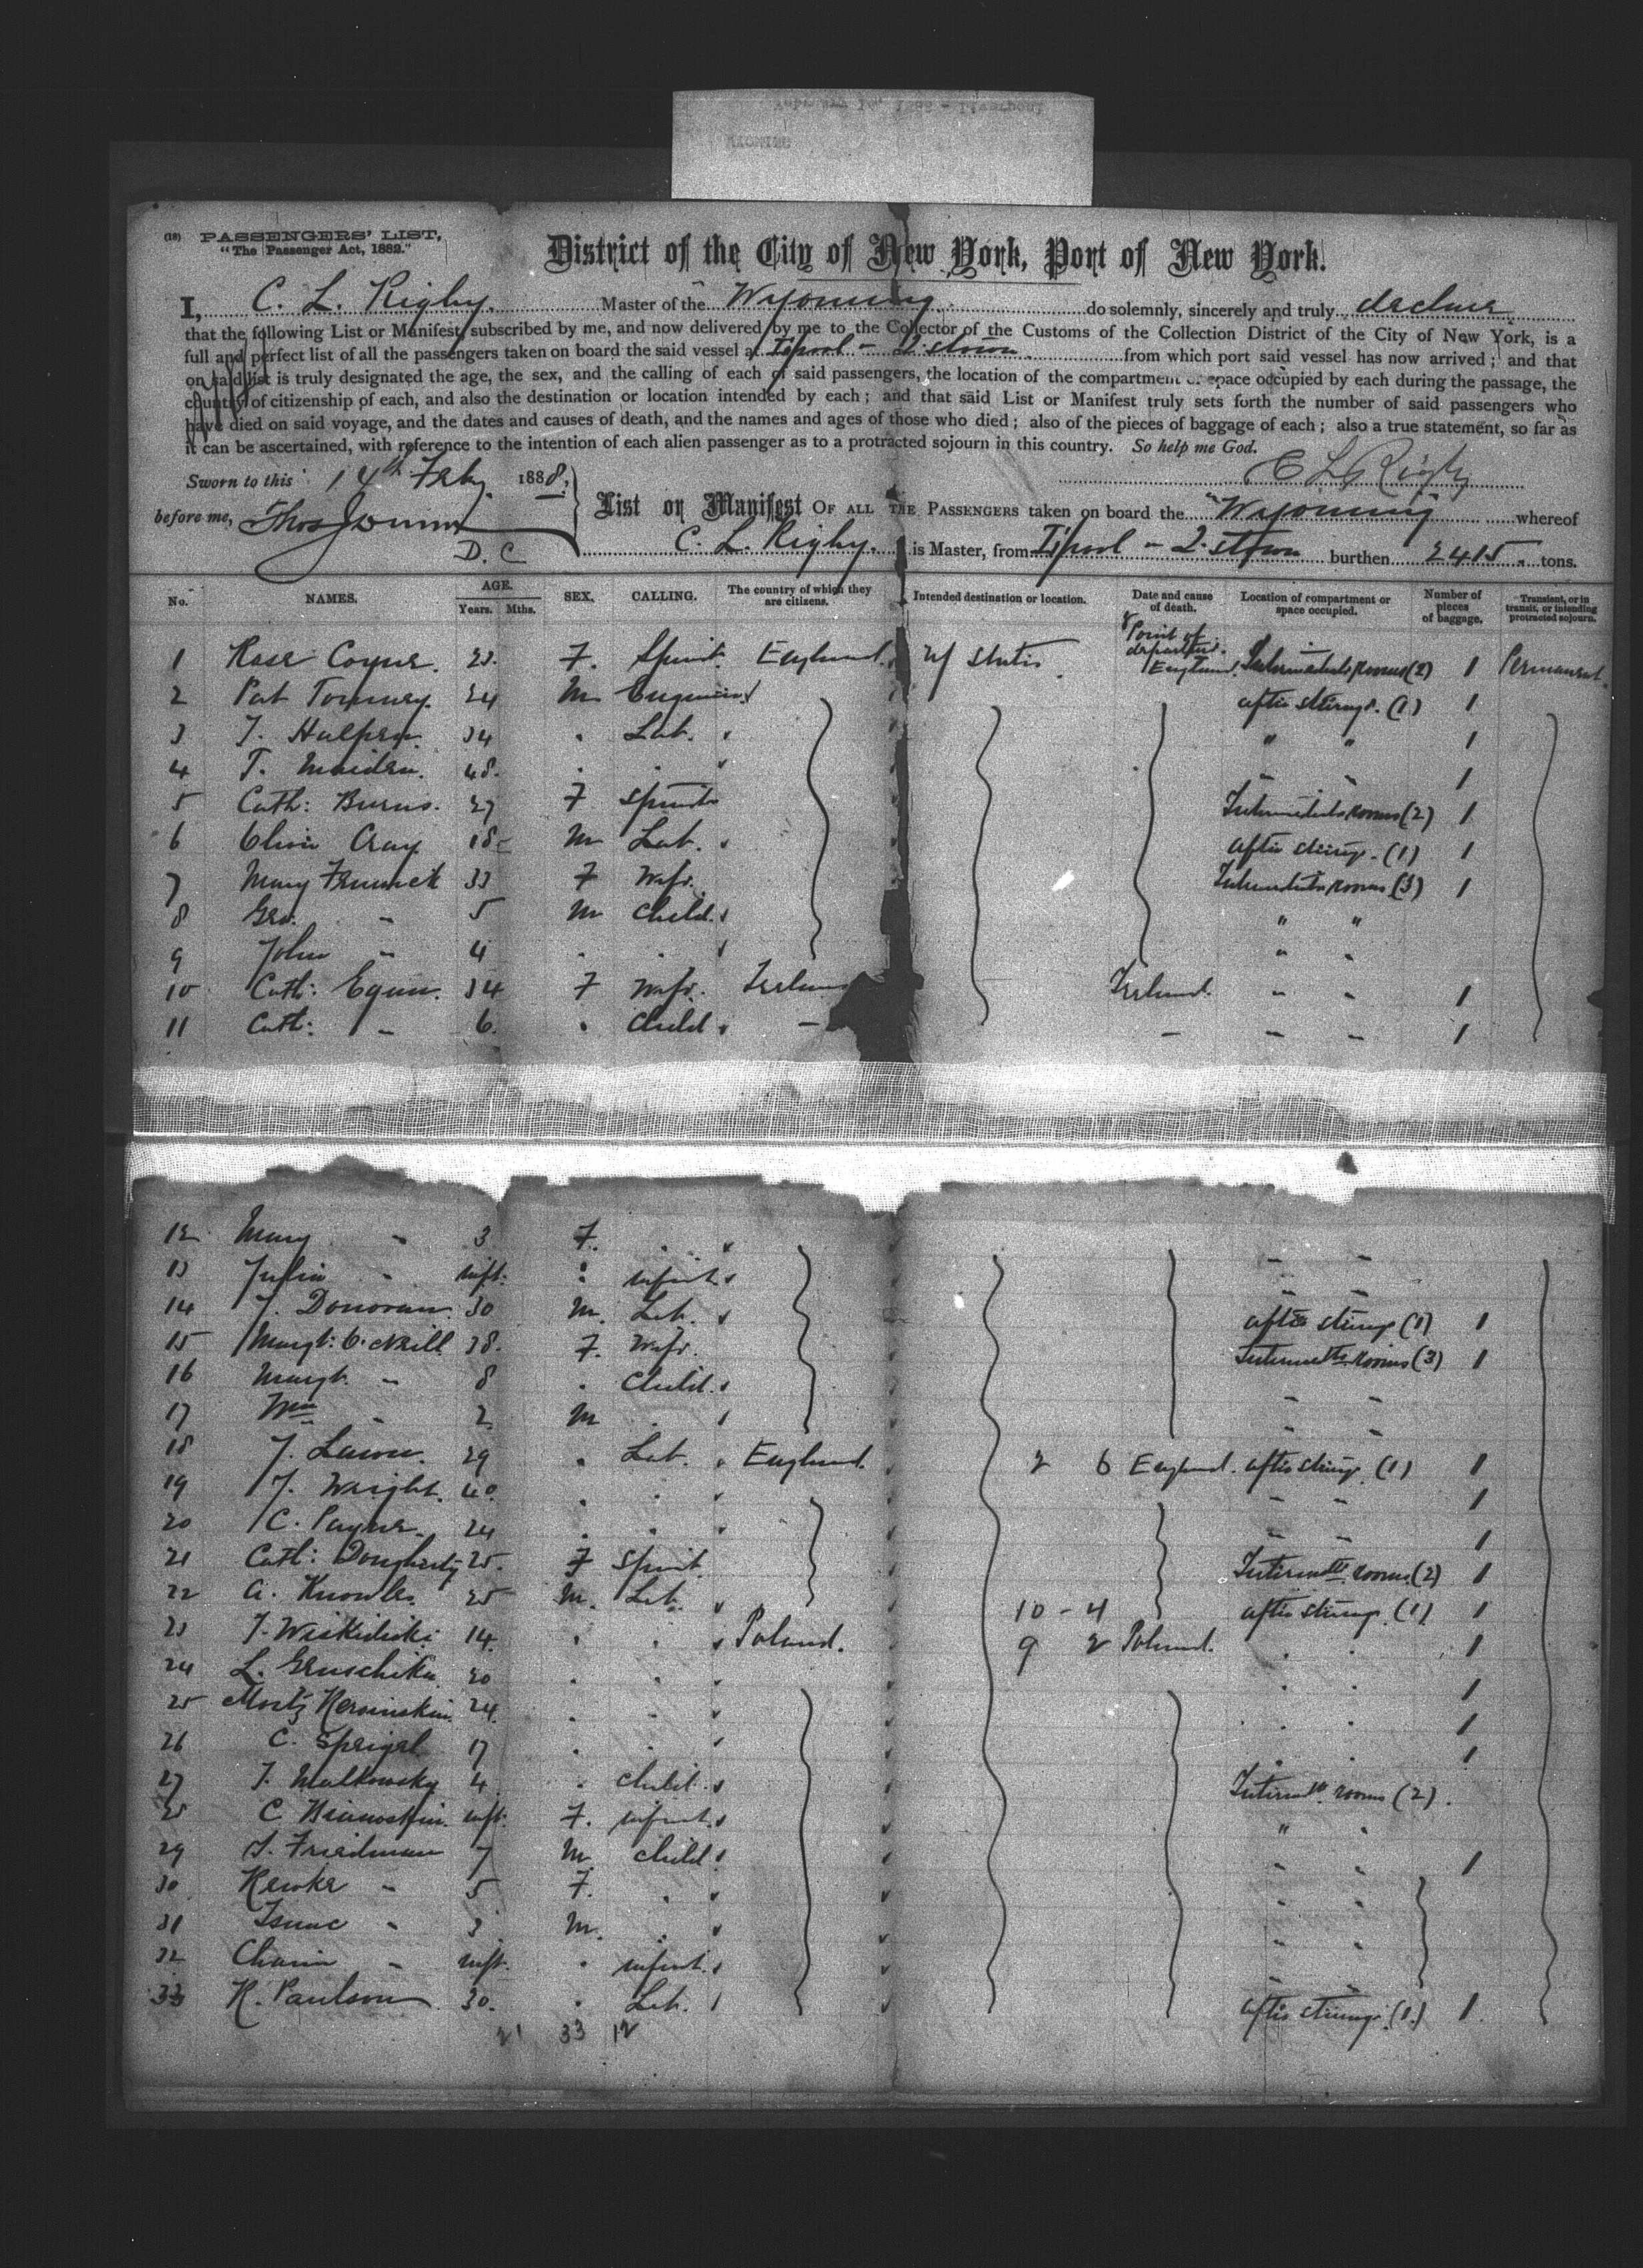 (18) PASSENGERS' LIST,
"The Passenger Act, 1882."
District of the City of New York, Port of New York.
I, C. L. Rigby. Master of the Wyoming do solemnly, sincerely and truly declare
that the following List or Manifest, subscribed by me, and now delivered by me to the Collector of the Customs of the Collection District of the City of New York, is a
full and perfect list of all the passengers taken on board the said vessel at L'pool - Q.stown from which port said vessel has now arrived; and that
on said list is truly designated the age, the sex, and the calling of each of said passengers, the location of the compartment or space occupied by each during the passage, the
country of citizenship of each, and also the destination or location intended by each; and that said List or Manifest truly sets forth the number of said passengers who
have died on said voyage, and the dates and causes of death, and the names and ages of those who died; also of the pieces of baggage of each; also a true statement, so far as
it can be ascertained, with reference to the intention of each alien passenger as to a protracted sojourn in this country. So help me God.
Sworn to this 14th Feby 1888, C L Rigby
before me, Thos
D. C
List or Manifest OF ALL THE PASSENGERS taken on board the "Wyoming" whereof
C. L. Rigby. is Master, from L'pool - Q.stown burthen 2415 tons.
No. NAMES. AGE. Years. Mths. SEX. CALLING. The country of which they are citizens. Intended destination or location. Date and cause of death. Location of compartment or space occupied. Number of pieces of baggage. Transient, or in transit, or intending protracted sojourn.
& Point of departure.
1 Rose Coyne. 23. F. Spinst. England U/ States England Intermediate rooms (2) 1 Permanent.
2 Pat 24 M Engineer after steerage. (1) 1
3 J. Halpern 34 . Lab. " " 1
4 T. Maiden. 48. . . " " 1
5 Cath: Burns. 27 F Spinst Intermediate rooms (2) 1
6 Cray 18 M Lab. after steerage. (1) 1
7 Mary 33 F Wife. Intermediate rooms (3) 1
8 Geo. " 5 M Child. " "
9 John " 4 . . " "
10 Cath: Egan. 34 F Wife. Ireland Ireland. " " 1
11 Cath: " 6. . Child - - " " 1
12 Mary " 3 F. . " "
13 Julia " inft. . infant " "
14 J. Donovan 30 M. Lab. after steerage (1) 1
15 Margt: O'Neill 38. F. Wife. Intermedte rooms (3) 1
16 Margt. " 8 . Child. " "
17 Wm " 2 M . " "
18 J. 29 . Lab. England. 2 6 England. after steerage (1) 1
19 J. Wright. 40. . . " " 1
20 C. Payne. 24 . . " " 1
21 Cath: Dougherty 25. F Spinst. Intermedte rooms (2) 1
22 A. Knowles. 25 M. Lab. 10 - 4 after steerage. (1). 1
23 J. 14. . . Poland. 9 2 Poland. . . 1
24 L. 20 . . . . 1
25 24. . . . . 1
26 C. Speigel 17 . . . . 1
27 J. Malkowsky 4 . child. Intermedte rooms (2).
28 C inft. F. infant. " "
29 S. Friedman 7 M. child. " " 1
30 " 5 F. . " "
31 Isaac " 3 M. . " "
32 " inft. . infant. " "
33 K. Paulson 30. . Lab. after steerage. (1.) 1.
21 33 12